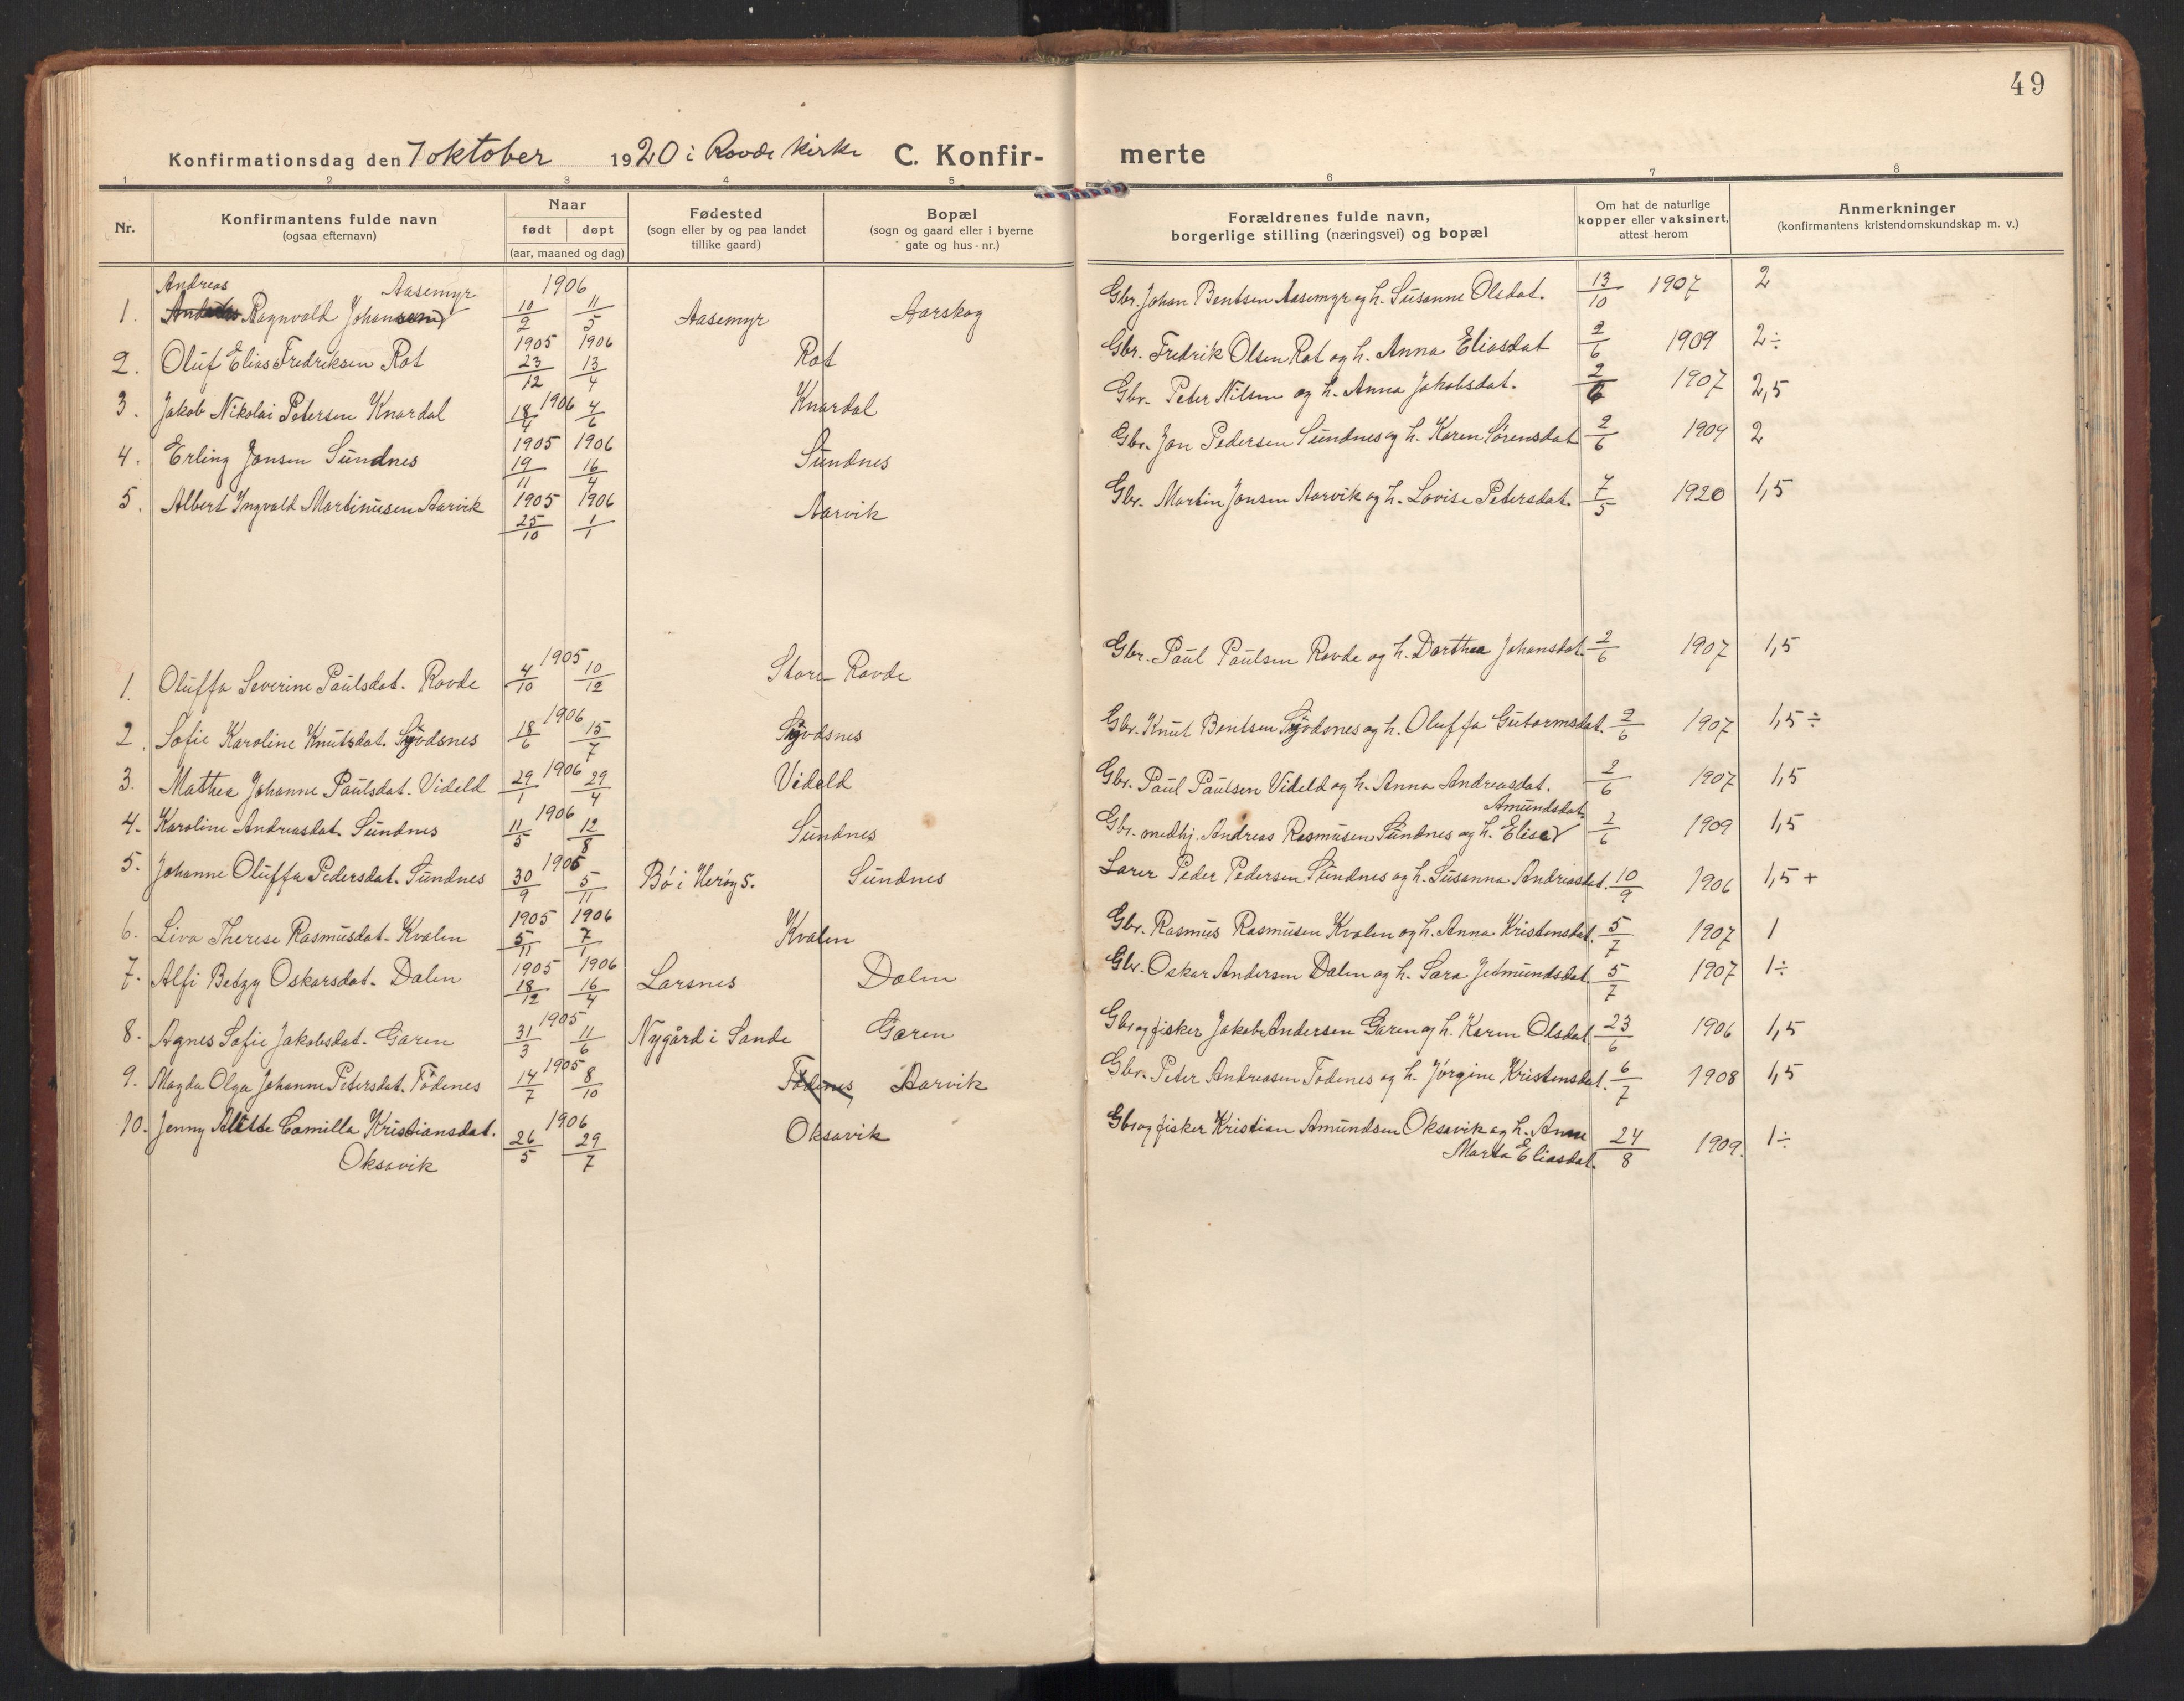 49
Konfirmationsdag den 7 oktober 1920 i Rovde kirke C. Konfir-merte
1 2 3 4 5 6 7 8
Nr. Konfirmantens fulde navn (ogsaa efternavn) Naar født døpt (aar, maaned og dag) Fødested (sogn eller by og paa landet tillike gaard) Bopæl (sogn og gaard eller i byerne gate og hus-nr.) Forældrenes fulde navn, borgerlige stilling (næringsvei) og bopæl Om hat de naturlige kopper eller vaksinert, attest herom Anmerkninger (konfirmantens kristendomskundskap m. v.)
Andreas Aasemyr 1906
1. Ragnvald Johansen 10/2 11/5 Aasemyr Aarskog Gbr. Johan Bentsen Aasemyr og h. Susanne Olsdat. 13/10 1907 2
1905 1906
2. Oluf Elias Fredriksen Rot 23/12 13/4 Rot Gbr. Fredrik Olsen Rot og h. Anna Eliasdat 2/6 1909 2÷
1906
3. Jakob Nikolai Petersen Knardal 18/4 4/6 Knardal Gbr. Peter Nilsen og h. Anna Jakobsdat. 2/6 1907 2,5
1905 1906
4. Erling Jonsen Sundnes 19/11 16/4 Sundnes Gbr. Jon Pedersen Sundnes og h. Karen Sørensdat 2/6 1909 2
1905 1906
5. Albert Ingvald Martinusen Aarvik 25/10 1/1 Aarvik Gbr. Martin Jonsen Aarvik og h. Lovise Petersdat. 7/5 1920 1,5
1905
1. Oluffa Severine Paulsdat. Rovde 4/10 10/12 Store Rovde Gbr. Paul Paulsen Rovde og h. Dorthea Johansdat 2/6 1907 1,5
1906
2. Sofie Karoline Knutsdat. Syvdsnes 18/6 15/7 Syvdsnes Gbr. Knut Bentsen Syvdsnes og h. Oluffa Gutormsdat. 2/6 1907 1,5÷
1906
3. Mathea Johanne Paulsdat. Videld 29/1 29/4 Videld Gbr. Paul Paulsen Videld og h. Anna Andreasdat. 2/6 1907 1,5
1906 Amundsdat
4. Karoline Andreasdat. Sundnes 11/5 12/8 Sundnes Gbr. medhj. Andreas Rasmusen Sundnes og h. Elise 2/6 1909 1,5
1905
5. Johanne Oluffa Pedersdat. Sundnes 30/9 5/11 Bø i Herøy S. Sundnes Lærer Peder Pedersen Sundnes og h. Susanna Andreasdat. 10/9 1906 1,5+
1905 1906
6. Liva Therese Rasmusdat. Kvalen 5/11 7/1 Kvalen Gbr. Rasmus Rasmusen Kvalen og h. Anna Kristensdat. 5/7 1907 1
1905 1906
7. Alfi Betzy Oskarsdat. Dalen 18/12 16/4 Larsnes Dalen Gbr. Oskar Andersen Dalen og h. Sara Jetmundsdat. 5/7 1907 1÷
1905
8. Agnes Sofie Jakobsdat. Garen 31/3 11/6 Nygård i Sande Garen Gbr og fisker Jakob Andersen Garen og h. Karen Olsdat. 23/6 1906 1,5
1905
9. Magda Olga Johanne Petersdat. Tødenes 14/7 8/10 Tødenes Aarvik Gbr. Peter Andreasen Tødenes og h. Jørgine Kristensdat. 6/7 1908 1,5
1906
10. Jenny Alette Camilla Kristiansdat. 26/5 29/7 Oksavik Gbr og fisker Kristian Amundsen Oksavik og h. Anne 24/8 1909. 1÷
Oksavik Marta Eliasdat.